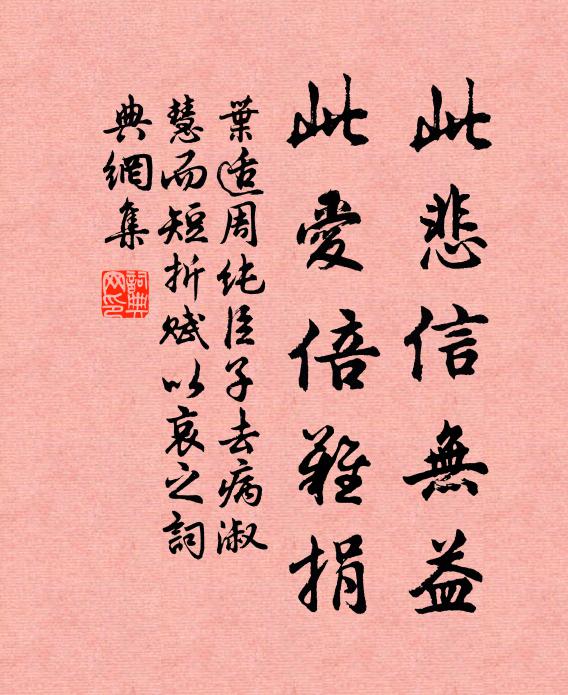 此悲信無益
此愛倍難捐
葉适周純臣子去病淑
慧而短折賦以哀之詞
典網集
詞典网印